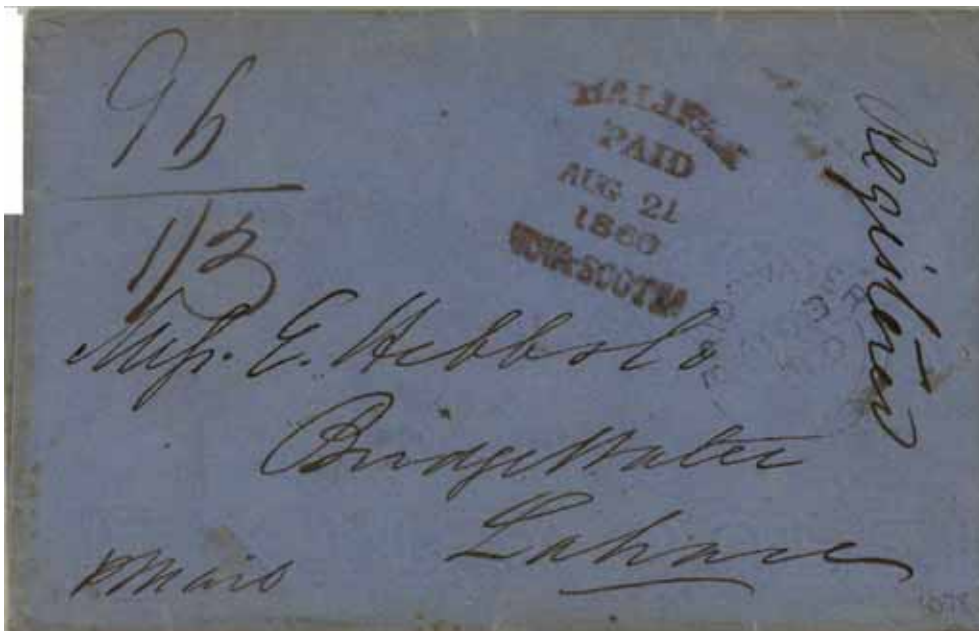 96
1/3
HALIFAX
PAID
AUG 21
1860
NOVA-SCOTIA
Registered
Miss. E.
BridgeWater
Lahave